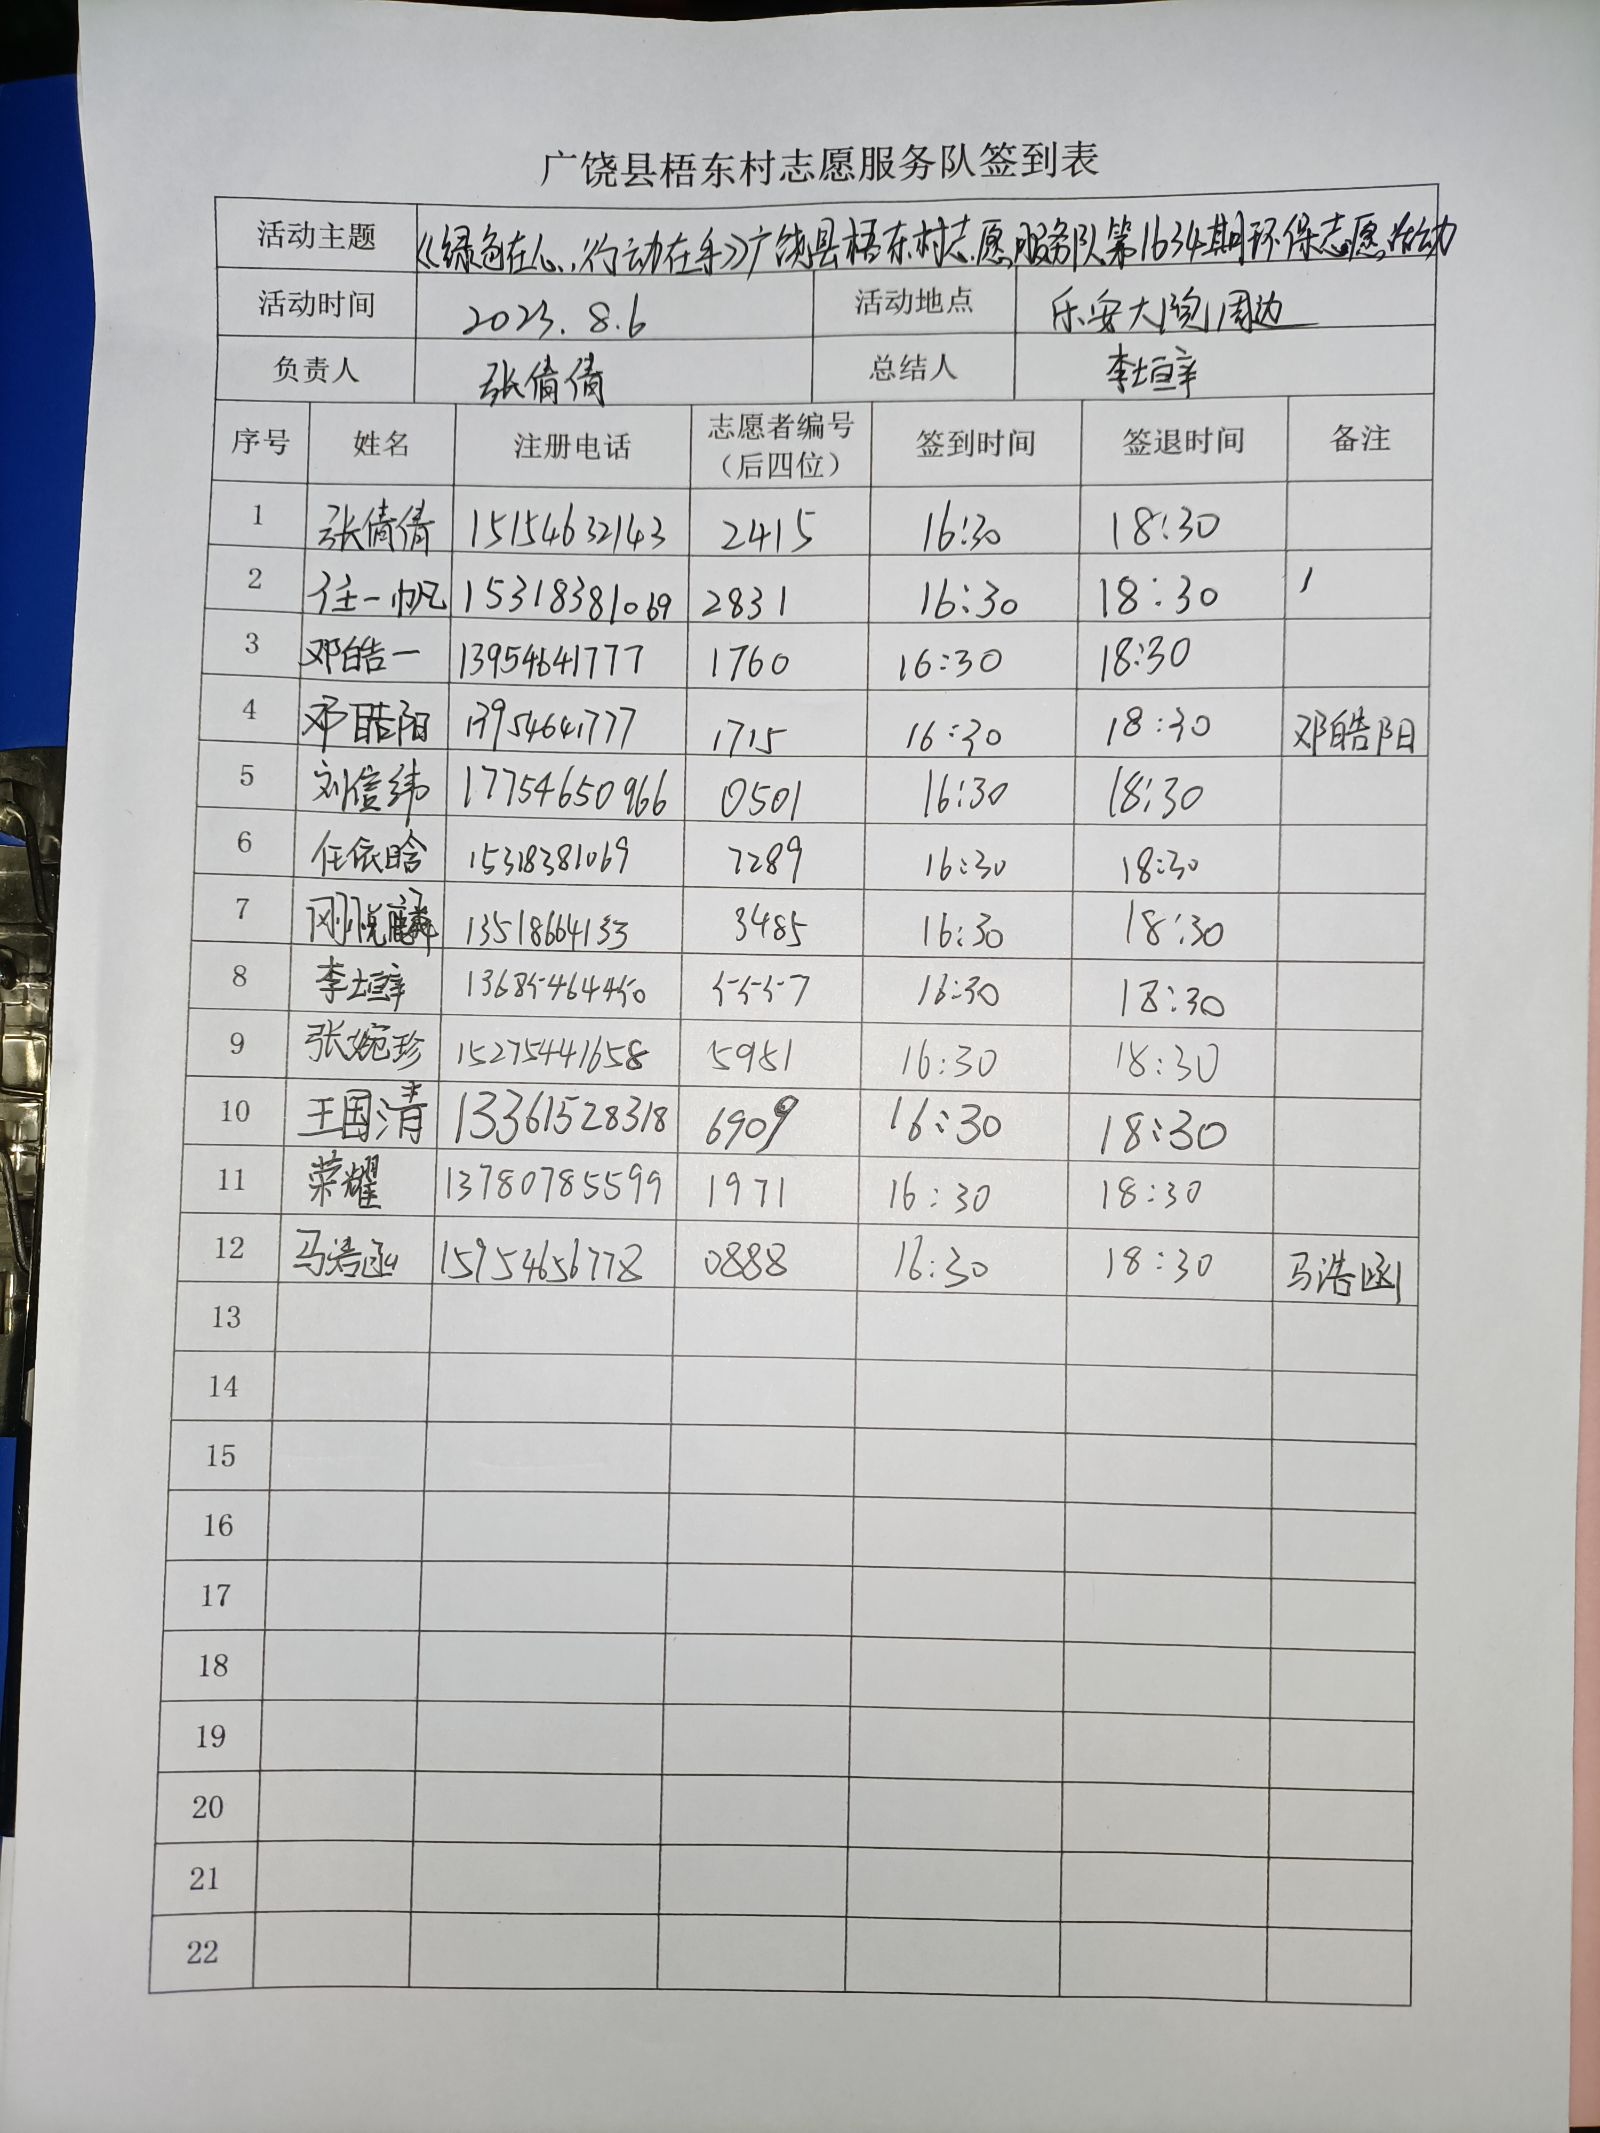 广饶县梧东村志愿服务队签到表
活动主题 《绿色在心,行动在手》广饶县梧东村志愿服务队第1634期环保志愿活动
活动时间 2023.8.6 活动地点 乐安大院周边
负责人 张倩倩 总结人 李垣宰
序号 姓名 注册电话 志愿者编号（后四位） 签到时间 签退时间 备注
1 张倩倩 15154632143 2415 16:30 18:30
2 任一帆 15318381069 2831 16:30 18:30
3 邓皓一 13954641777 1760 16:30 18:30
4 邓皓阳 13954641777 1715 16:30 18:30 邓皓阳
5 刘信纬 17754650966 0501 16:30 18:30
6 任依晗 15318381069 7289 16:30 18:30
7 刚悦麟 13518664133 3485 16:30 18:30
8 李垣宰 13685464450 5557 16:30 18:30
9 张婉珍 15275441658 5981 16:30 18:30
10 王国清 13361528318 6909 16:30 18:30
11 荣耀 13780785599 1971 16:30 18:30
12 马浩函 15954656778 0888 16:30 18:30 马浩函
13
14
15
16
17
18
19
20
21
22